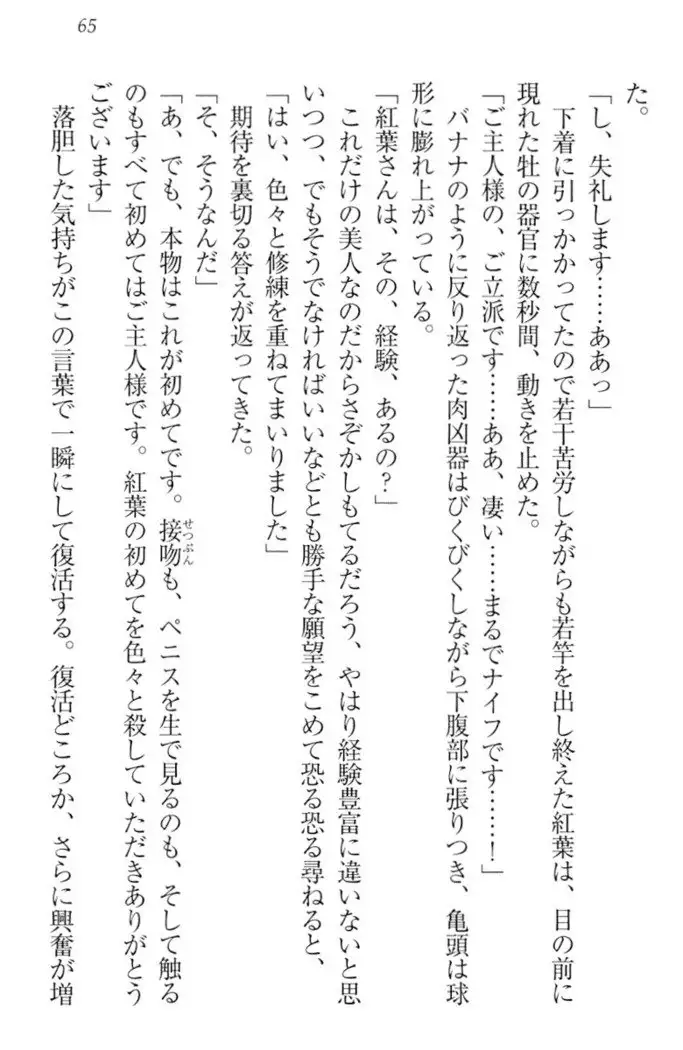 65
た。
「し、失礼します……ああっ」
下着に引っかかってたので若干苦労しながらも若竿を出し終えた紅葉は、目の前に
現れた牡の器官に数秒間、動きを止めた。
「ご主人様の、ご立派です……ああ、凄い……まるでナイフです……！」
バナナのように反り返った肉凶器はびくびくしながら下腹部に張りつき、亀頭は球
形に膨れ上がっている。
「紅葉さんは、その、経験、あるの？」
これだけの美人なのだからさぞかしもてるだろう、やはり経験豊富に違いないと思
いつつ、でもそうでなければいいなどとも勝手な願望をこめて恐る恐る尋ねると、
「はい、色々と修練を重ねてまいりました」
期待を裏切る答えが返ってきた。
「そ、そうなんだ」
「あ、でも、本物はこれが初めてです。接吻も、ペニスを生で見るのも、そして触る
せっぷん
のもすべて初めてはご主人様です。紅葉の初めてを色々と殺していただきありがとう
ございます」
落胆した気持ちがこの言葉で一瞬にして復活する。復活どころか、さらに興奮が増